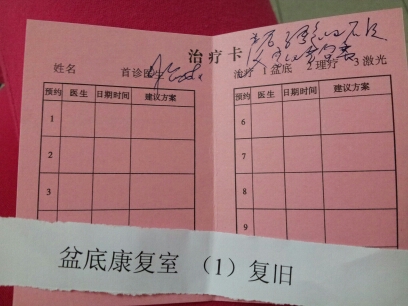 治疗卡
姓名 首诊医生
治疗 1盆底 2理疗 3激光
预约 医生 日期时间 建议方案
1
2
3
预约 医生 日期时间 建议方案
6
7
8
9
盆底康复室 （1）复旧